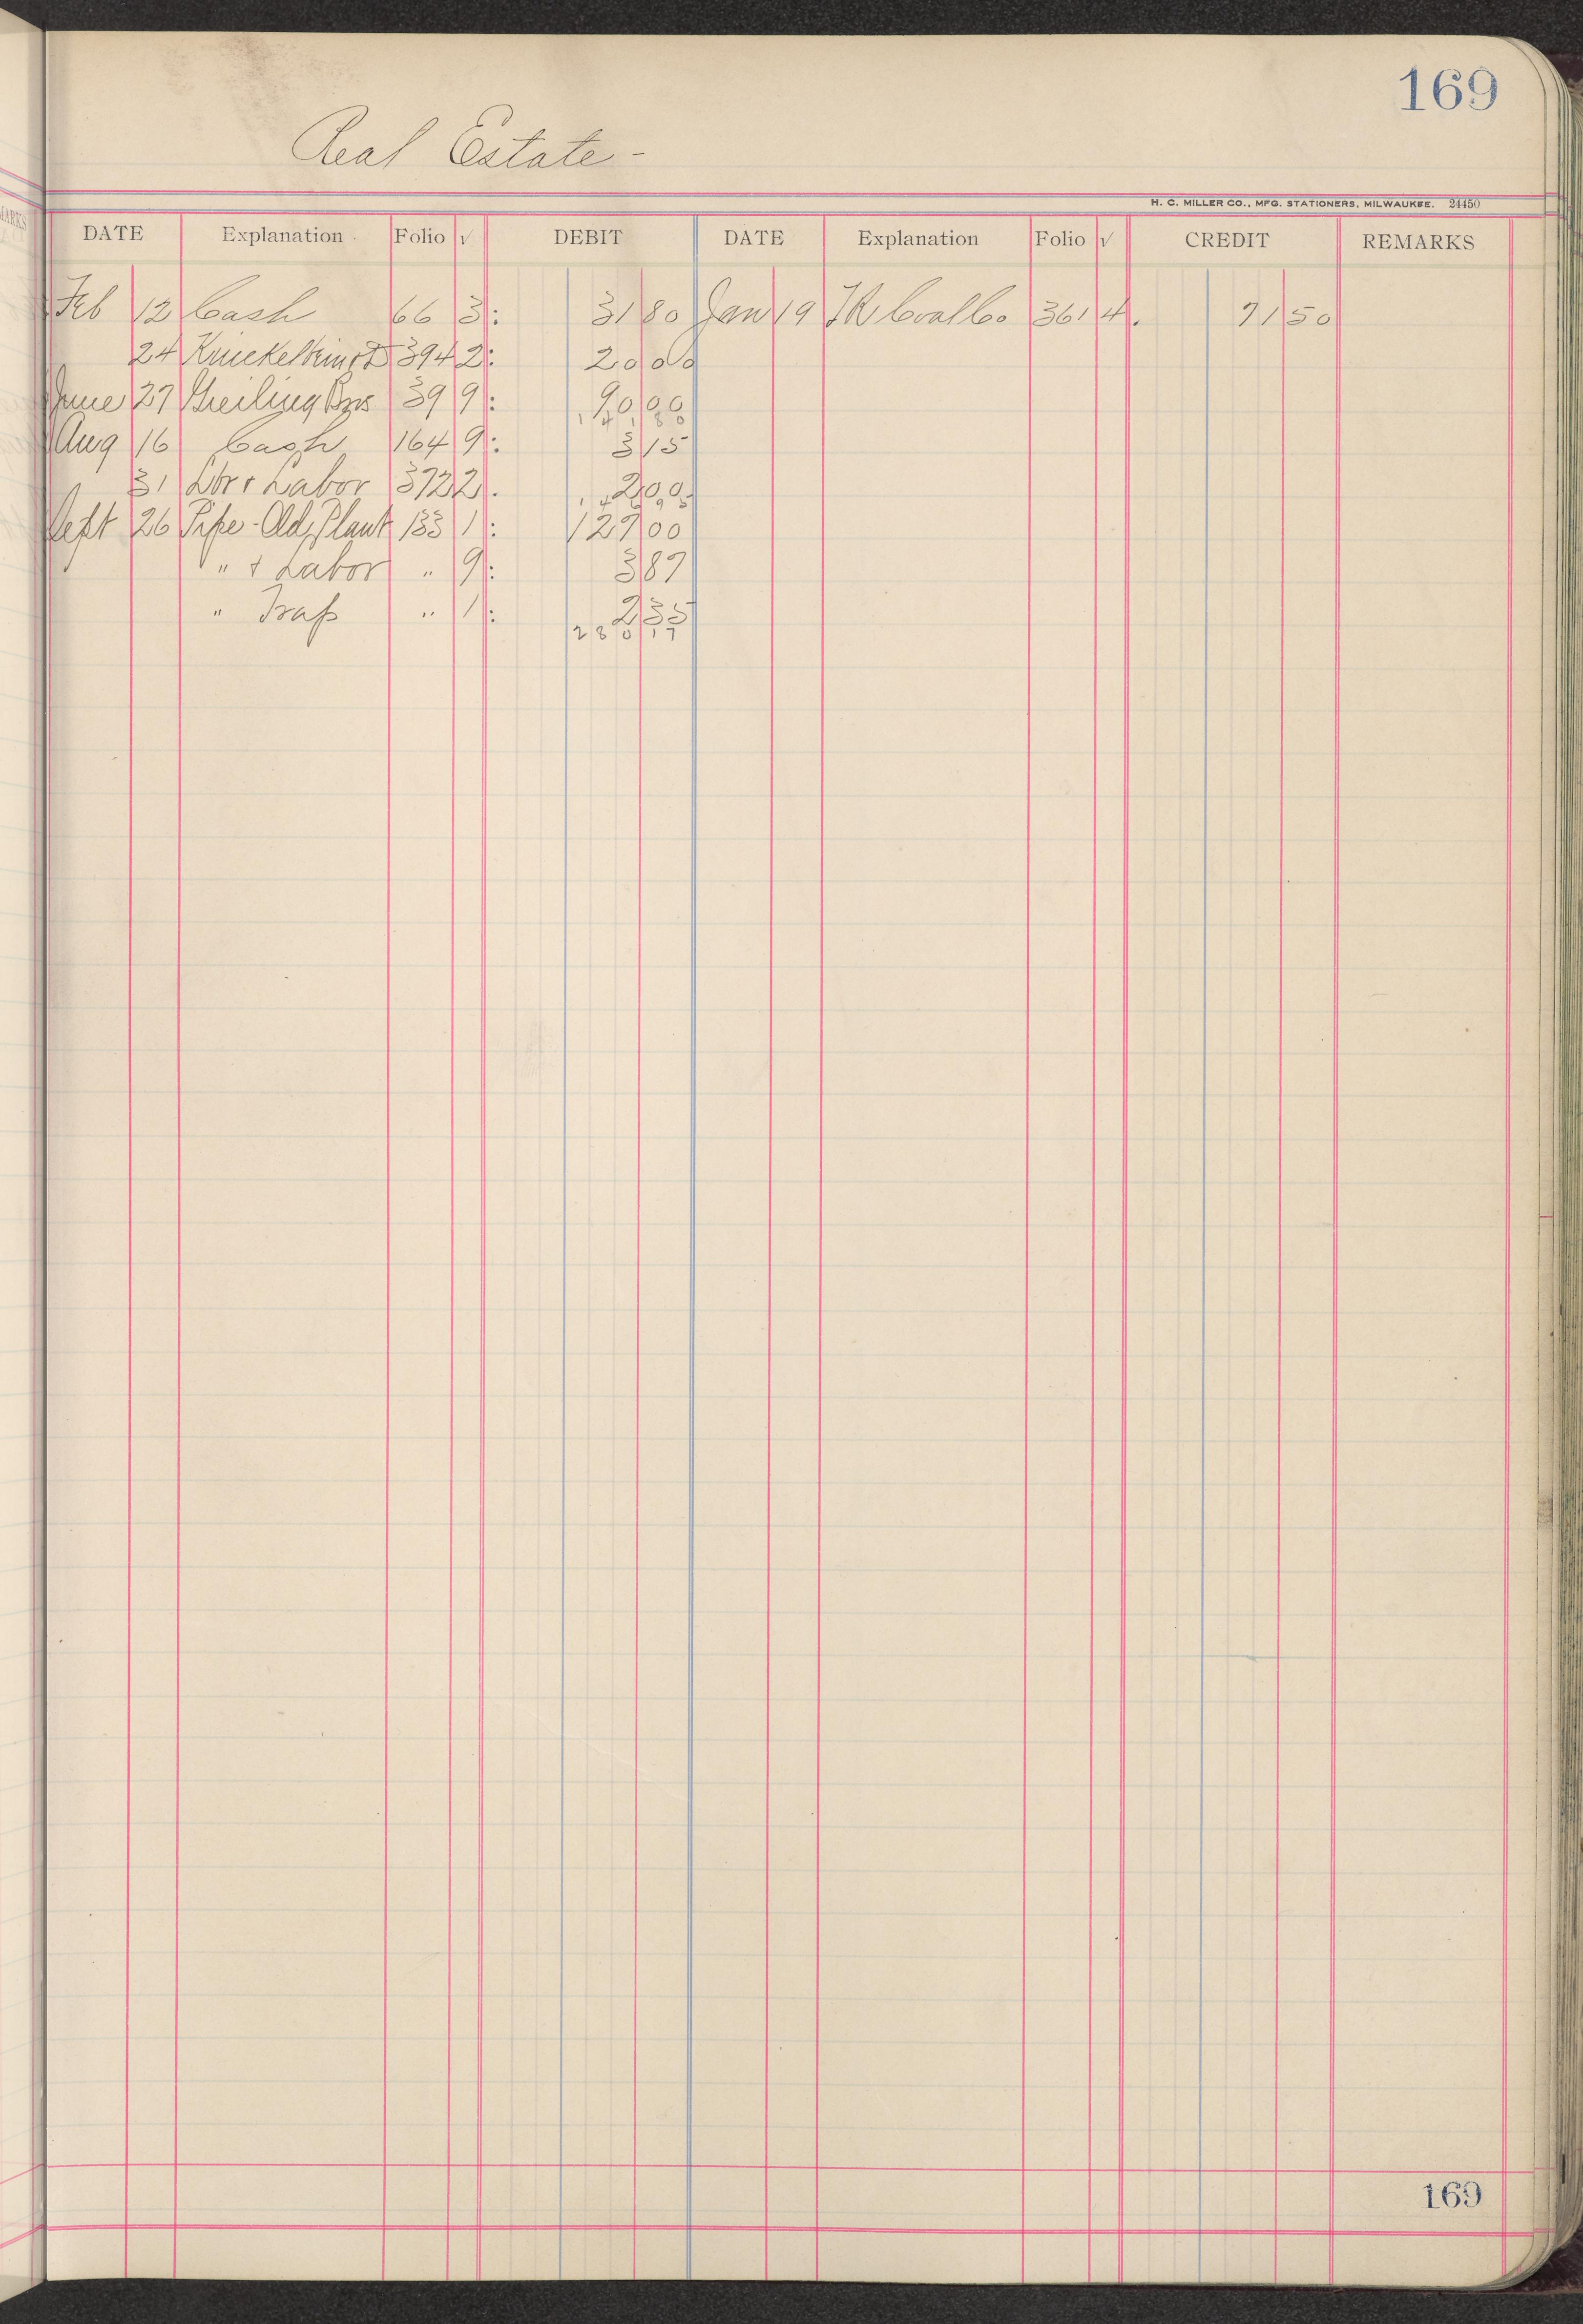 169
Real Estate -
H. C. MILLER CO., MFG. STATIONERS, MILWAUKEE. 24450
DATE Explanation Folio √ DEBIT DATE Explanation Folio √ CREDIT REMARKS
Feb 12 Cash 66 3: 31 80 Jan 19 Coal Co. 361 4. 71 50
24 394 2: 20 00
June 27 Greiling Bros 39 9: 90 00
141 80
Aug 16 Cash 164 9: 3 15
31 Lbr & Labor 372 2. 2 00
Sept 26 Pipe - Old Plant 133 1: 129 00
" & Labor " 9: 3 87
" Trap " 1: 2 35
283 17
169